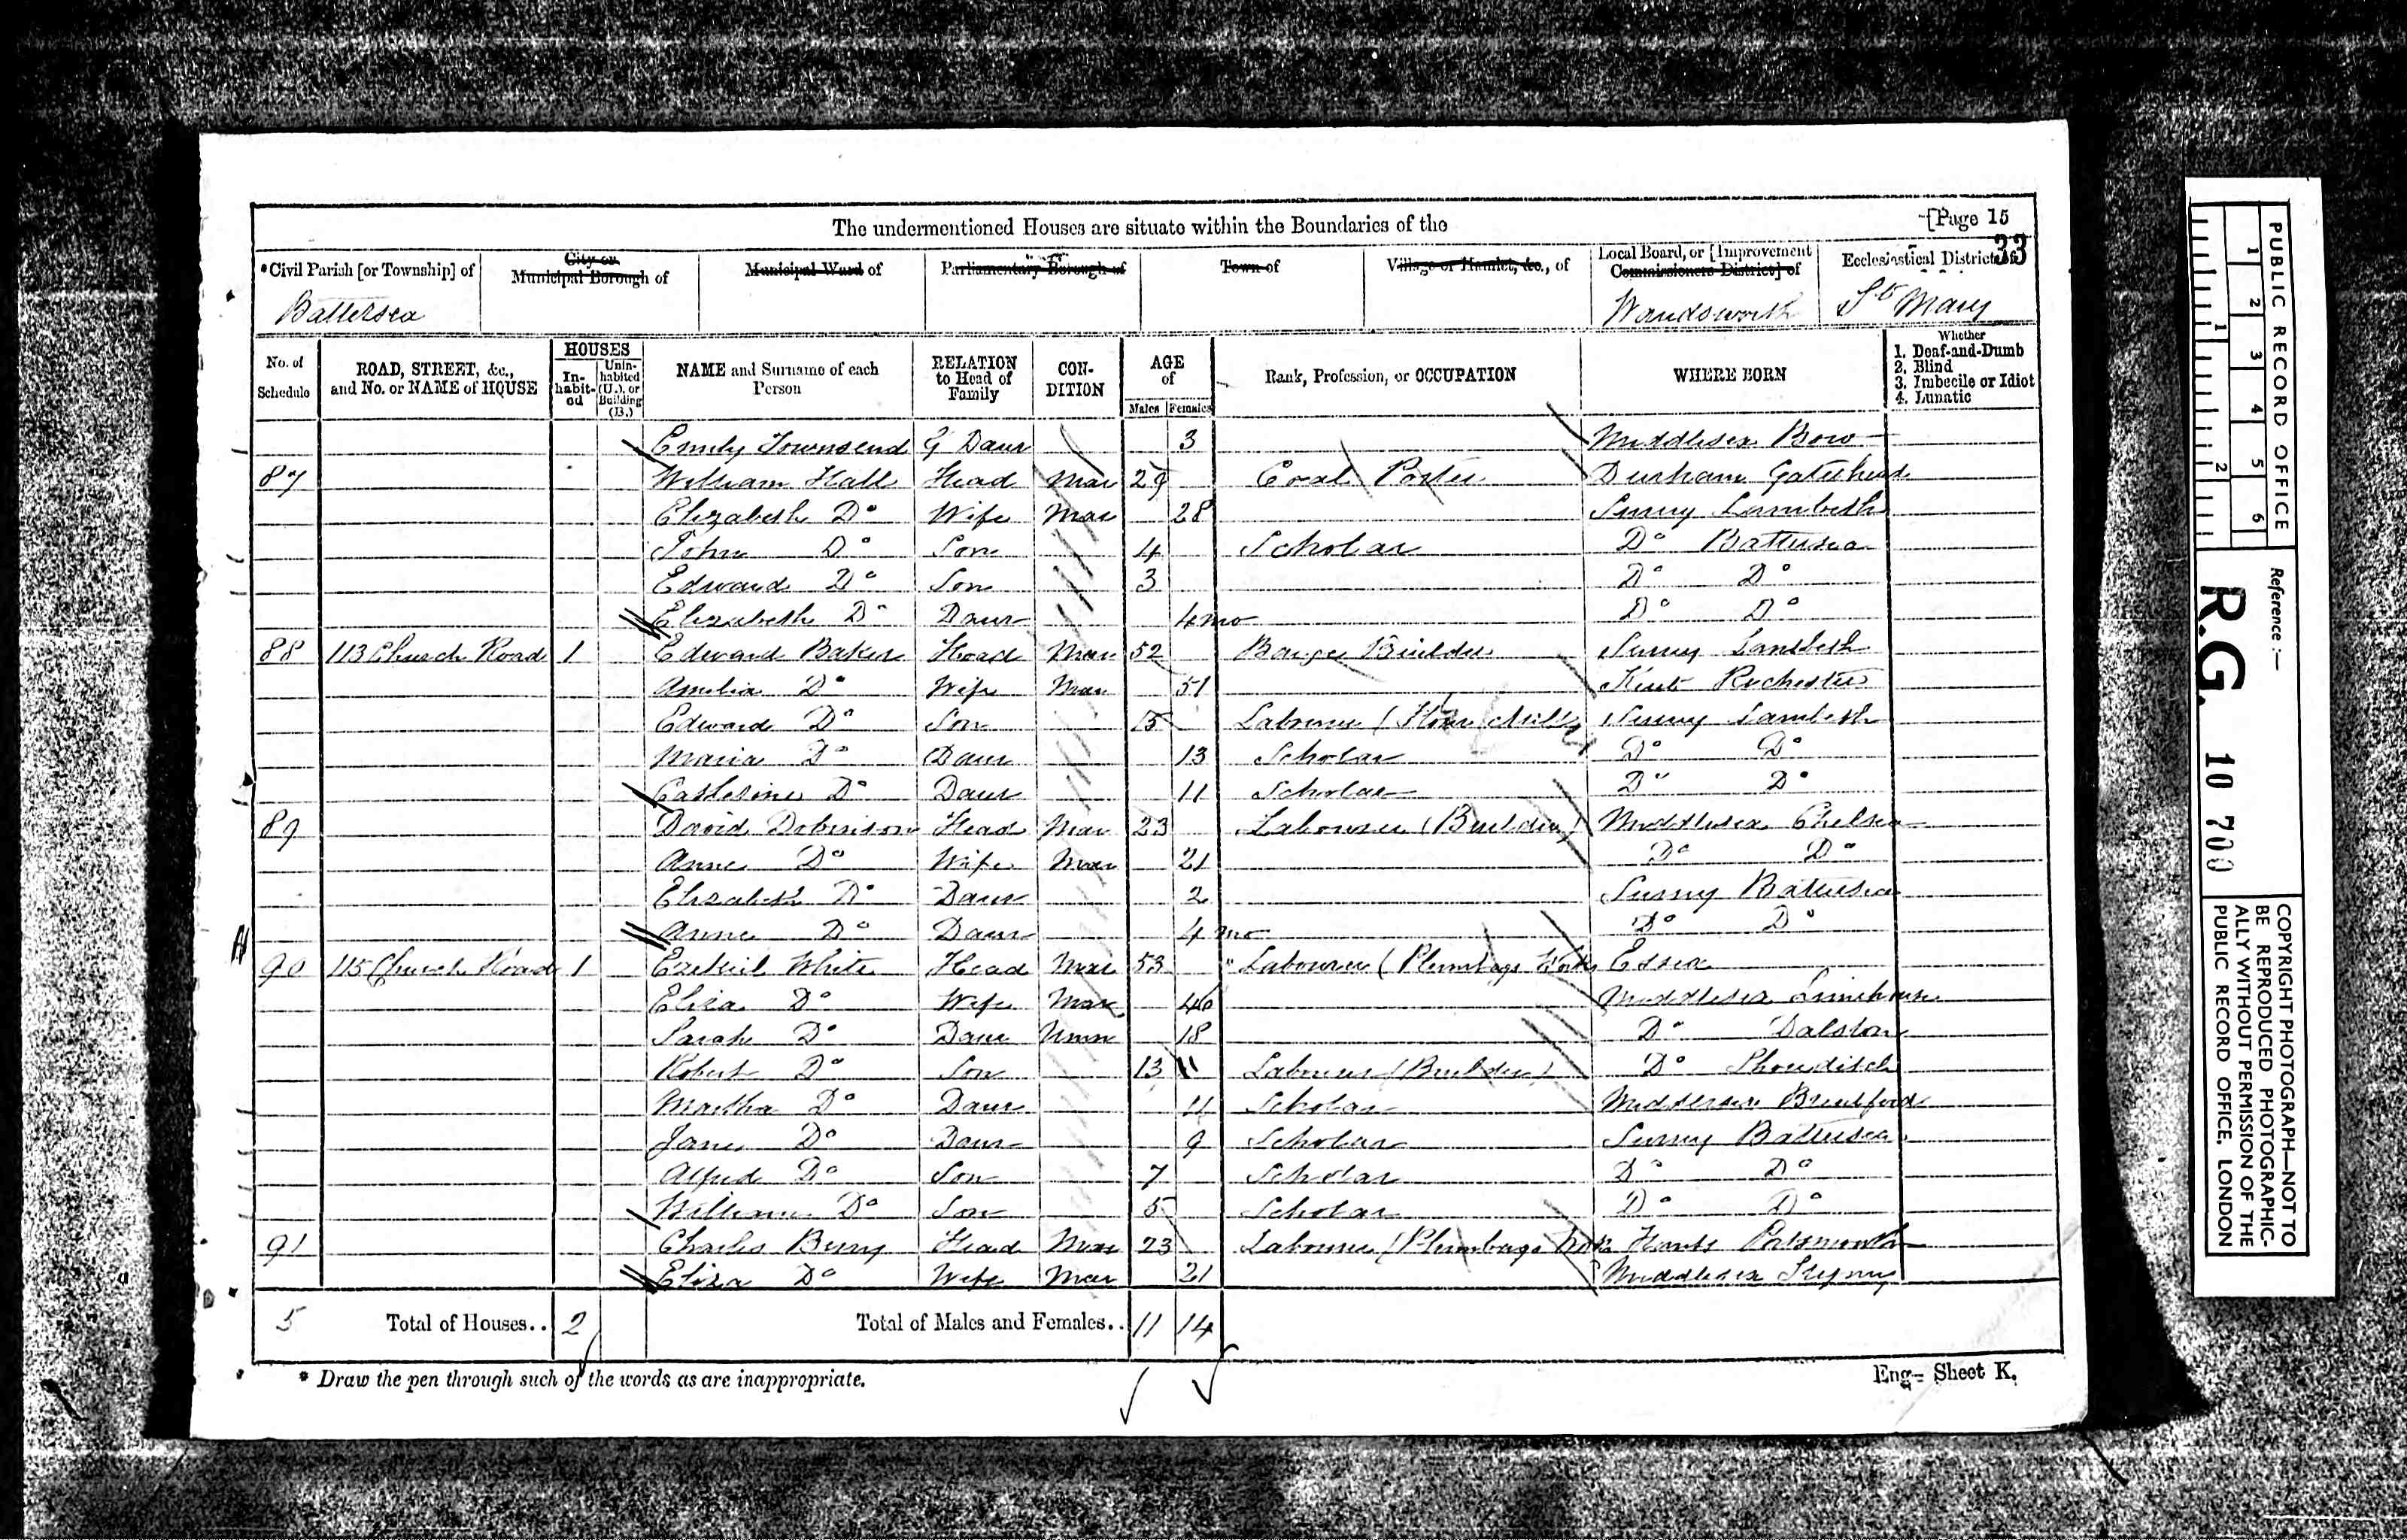 The undermentioned Houses are situate within the Boundaries of the
[Page 15
33
*Civil Parish [or Township] of
City or Municipal Borough of
Municipal Ward of
Parliamentary Borough of
Town of
Village or Hamlet, &c., of
Local Board, or [Improvement Commissioners District] of
Ecclesiastical District of
Battersea
Wandsworth
St Mary
No. of Schedule
ROAD, STREET, &c., and No. or NAME of HOUSE
HOUSES
In-habit-ed
Unin-habited (U.), or Building (B.)
NAME and Surname of each Person
RELATION to Head of Family
CON-DITION
AGE of
Males
Females
Rank, Profession, or OCCUPATION
WHERE BORN
Whether
1. Deaf-and-Dumb
2. Blind
3. Imbecile or Idiot
4. Lunatic
Emily Townsend G Daur 3 Middlesex Bow
87 William Hall Head Mar 29 Coal Porter Durham Gateshead
Elizabeth Do Wife Mar 28 Surrey Lambeth
John Do Son 4 Scholar Do Battersea
Edward Do Son 3 Do Do
Elizabeth Do Daur 4 mo Do Do
88 113 Church Road 1 Edward Baker Head Mar 52 Barge Builder Surrey Lambeth
Amelia Do Wife Mar 51 Kent Rochester
Edward Do Son 15 Labourer (Flour Mill) Surrey Lambeth
Maria Do Daur 13 Scholar Do Do
Catherine Do Daur 11 Scholar Do Do
89 David Dobinson Head Mar 23 Labourer (Builder) Middlesex Chelsea
Anne Do Wife Mar 21 Do Do
Elizabeth Do Daur 2 Surrey Battersea
Anne Do Daur 4 mo Do Do
90 115 Church Road 1 Ezekiel White Head Mar 53 Labourer (Plumbago Works Essex
Eliza Do Wife Mar 46 Middlesex Limehouse
Sarah Do Daur Unm 18 Do Dalston
Robert Do Son 13 Labourer (Builder) Do Shoreditch
Martha Do Daur 11 Scholar Middlesex Brentford
Jane Do Daur 9 Scholar Surrey Battersea
Alfred Do Son 7 Scholar Do Do
William Do Son 5 Scholar Do Do
91 Charles Berry Head Mar 23 Labourer (Plumbago Hants Portsmouth
Eliza Do Wife Mar 21 Middlesex Stepney
5 Total of Houses.. 2 Total of Males and Females.. 11 14
* Draw the pen through such of the words as are inappropriate.
Eng- Sheet K.
PUBLIC RECORD OFFICE
1 2 3 4 5 6
1 2
Reference :—
R.G. 10 700
COPYRIGHT PHOTOGRAPH—NOT TO
BE REPRODUCED PHOTOGRAPHIC-
ALLY WITHOUT PERMISSION OF THE
PUBLIC RECORD OFFICE, LONDON